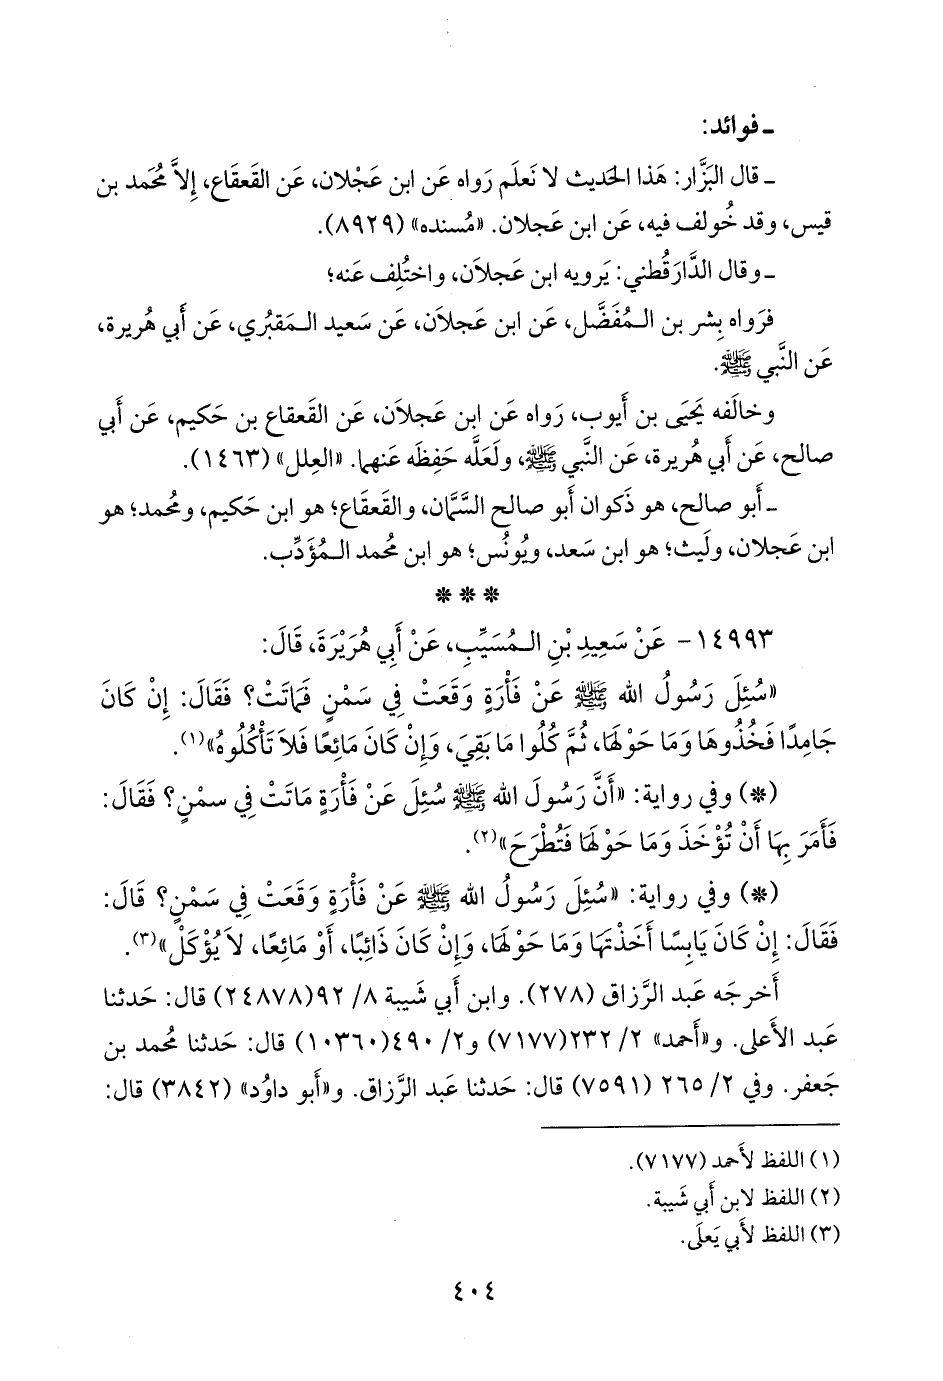 ـ فوائد:
ـ قال البَزَّار: هَذا الحَديث لا نَعلَم رَواه عَن ابن عَجْلان، عَن القَعقَاع، إِلاَّ مُحَمد بن
قيس، وقد خُولف فيه، عَن ابن عَجلان. «مُسنده» (٨٩٢٩).
ـ وقال الدَّارَقُطني: يَرويه ابن عَجلاَن، واختُلِف عَنه؛
فرَواه بِشر بن الـمُفَضَّل، عَن ابن عَجلاَن، عَن سَعيد الـمَقبُري، عَن أَبي هُريرة،
عَن النَّبي ﷺ.
وخالَفه يَحيَى بن أَيوب، رَواه عَن ابن عَجلاَن، عَن القَعقاع بن حَكيم، عَن أَبي
صالح، عَن أَبي هُريرة، عَن النَّبي ﷺ، ولَعَلَّه حَفِظَه عَنهما. «العِلل» (١٤٦٣).
ـ أَبو صالح، هو ذَكوان أَبو صالح السَّمَّان، والقَعقاع؛ هو ابن حَكيم، ومُحمد؛ هو
ابن عَجلان، ولَيث؛ هو ابن سَعد، ويُونُس؛ هو ابن مُحمد الـمُؤَدِّب.
* * *
١٤٩٩٣- عَنْ سَعِيدِ بْنِ الـمُسَيِّبِ، عَنْ أَبِي هُرَيْرَةَ، قَالَ:
«سُئِلَ رَسُولُ الله ﷺ عَنْ فَأْرَةٍ وَقَعَتْ فِي سَمْنٍ فَمَاتَتْ؟ فَقَالَ: إِنْ كَانَ
جَامِدًا فَخُذُوهَا وَمَا حَوْلَهَا، ثُمَّ كُلُوا مَا بَقِيَ، وَإِنْ كَانَ مَائِعًا فَلاَ تَأْكُلُوهُ»(١).
(*) وفي رواية: «أَنَّ رَسُولَ الله ﷺ سُئِلَ عَنْ فَأْرَةٍ مَاتَتْ فِي سمْنٍ؟ فَقَالَ:
فَأَمَرَ بِهَا أَنْ تُؤْخَذَ وَمَا حَوْلَهَا فَتُطْرَحَ»(٢).
(*) وفي رواية: «سُئِلَ رَسُولُ الله ﷺ عَنْ فَأْرَةٍ وَقَعَتْ فِي سَمْنٍ؟ قَالَ:
فَقَالَ: إِنْ كَانَ يَابِسًا أَخَذْتَهَا وَمَا حَوْلَهَا، وَإِنْ كَانَ ذَائِبًا، أَوْ مَائِعًا، لاَ يُؤْكَلْ»(٣).
أَخرجَه عَبد الرَّزاق (٢٧٨). وابن أَبي شَيبة ٨/ ٩٢(٢٤٨٧٨) قال: حَدثنا
عَبد الأَعلى. و«أَحمد» ٢/ ٢٣٢(٧١٧٧) و٢/ ٤٩٠(١٠٣٦٠) قال: حَدثنا مُحمد بن
جَعفر. وفي ٢/ ٢٦٥ (٧٥٩١) قال: حَدثنا عَبد الرَّزاق. و«أَبو داوُد» (٣٨٤٢) قال:
(١) اللفظ لأَحمد (٧١٧٧).
(٢) اللفظ لابن أَبي شَيبة.
(٣) اللفظ لأَبي يَعلَى.
٤٠٤